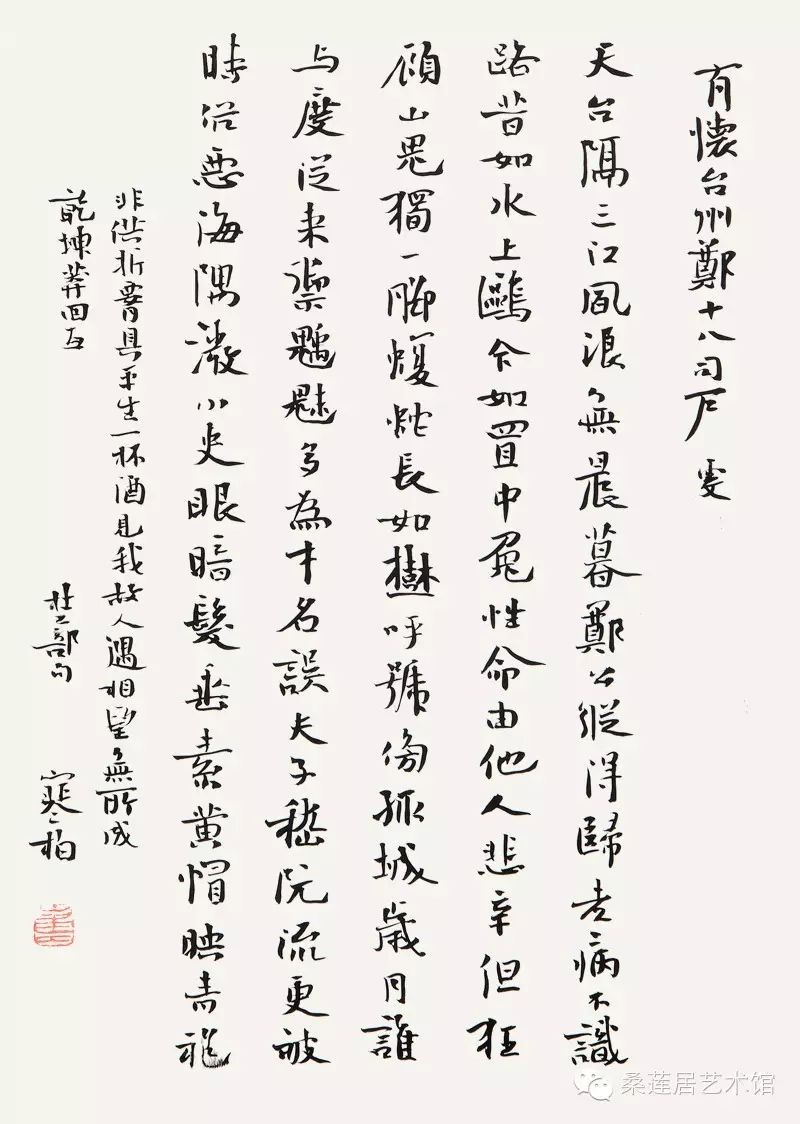 有懷台州鄭十八司户 虔
天台隔三江風浪無晨暮鄭公縱得歸老病不識
路昔如水上鷗今如罝中兔性命由他人悲辛但狂
顧山鬼獨一脚蝮蛇長如樹呼號傍孤城歲月誰
与度從来禦魑魅多為才名誤夫子嵇阮流更被
時俗惡海隅微小吏眼暗髮垂素黄帽映青袍
非供折腰具平生一杯酒見我故人遇相望無所成
乾坤莽回互
杜工部句 寒柏
桑莲居艺术馆